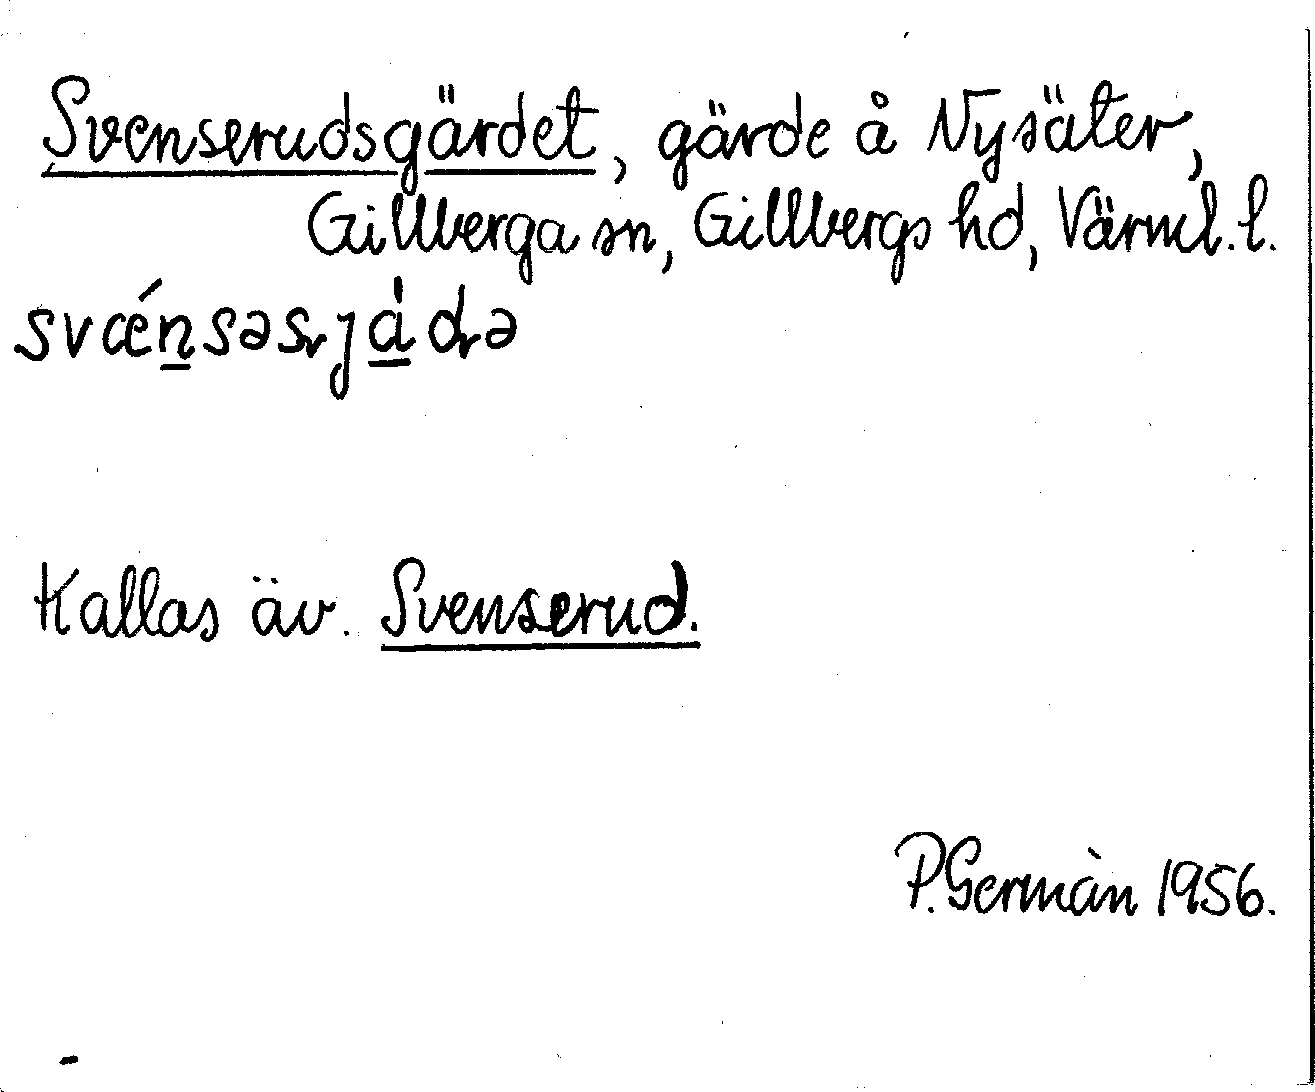 Svenserudsgärdet, gärde å Nysäter,
Gillberga sn, Gillbergs hd, Värml. l.
svǽn̲səsrjà̲drə
Kallas äv. Svenserud.
P. Germàn 1956.